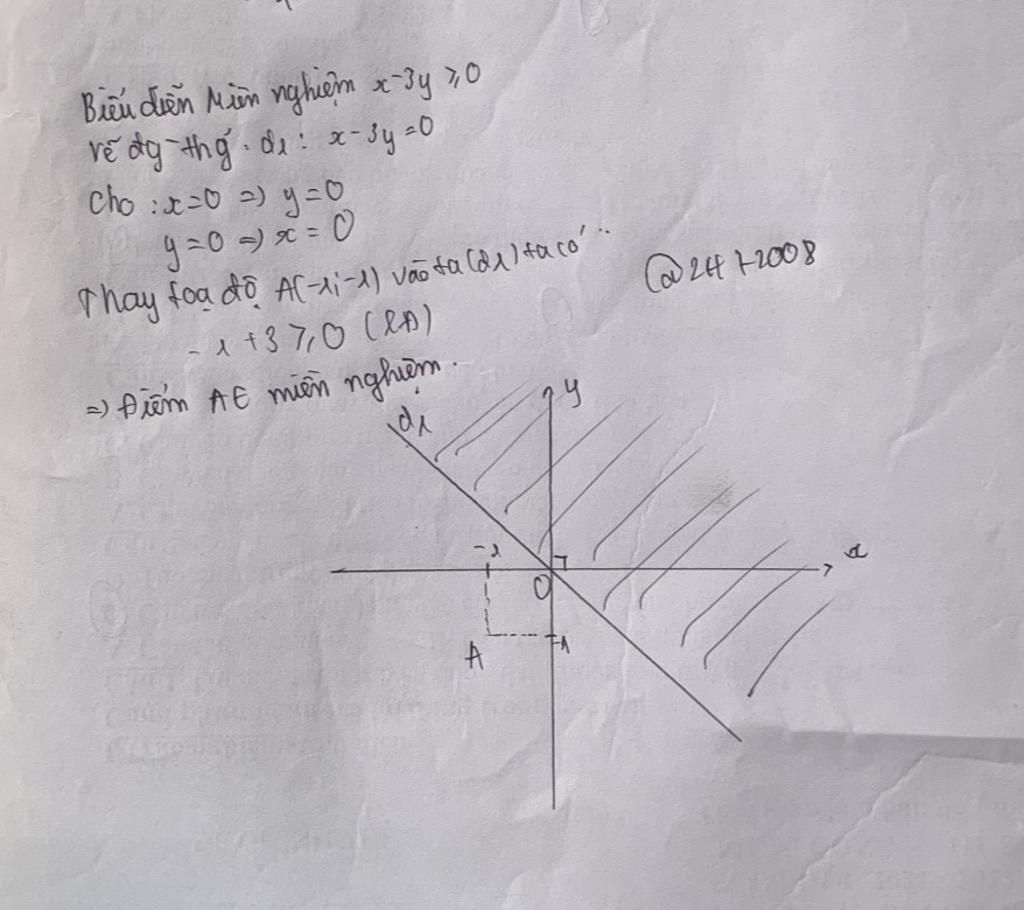 Biểu diễn Miền nghiệm x-3y ≥ 0
vẽ đg-thg. d1: x-3y=0
Cho : x=0 => y=0
y=0 => x=0
Thay toạ độ A(-1;-1) vào ta (d1) ta có
@24+2008
-1+3 ≥ 0 (LĐ)
=> Điểm A ∈ miền nghiệm.
d1
y
-1
x
O
A
-1